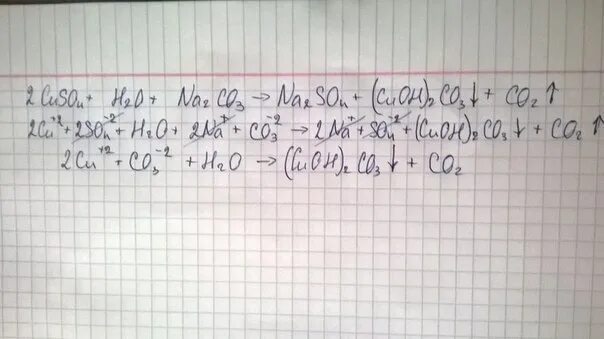 2CuSO₄ + H₂O + Na₂CO₃ → Na₂SO₄ + (CuOH)₂CO₃↓ + CO₂↑
2Cu⁺² + 2SO₄⁻² + H₂O + 2Na⁺ + CO₃⁻² → 2Na⁺ + SO₄⁻² + (CuOH)₂CO₃↓ + CO₂↑
2Cu⁺² + CO₃⁻² + H₂O → (CuOH)₂CO₃↓ + CO₂